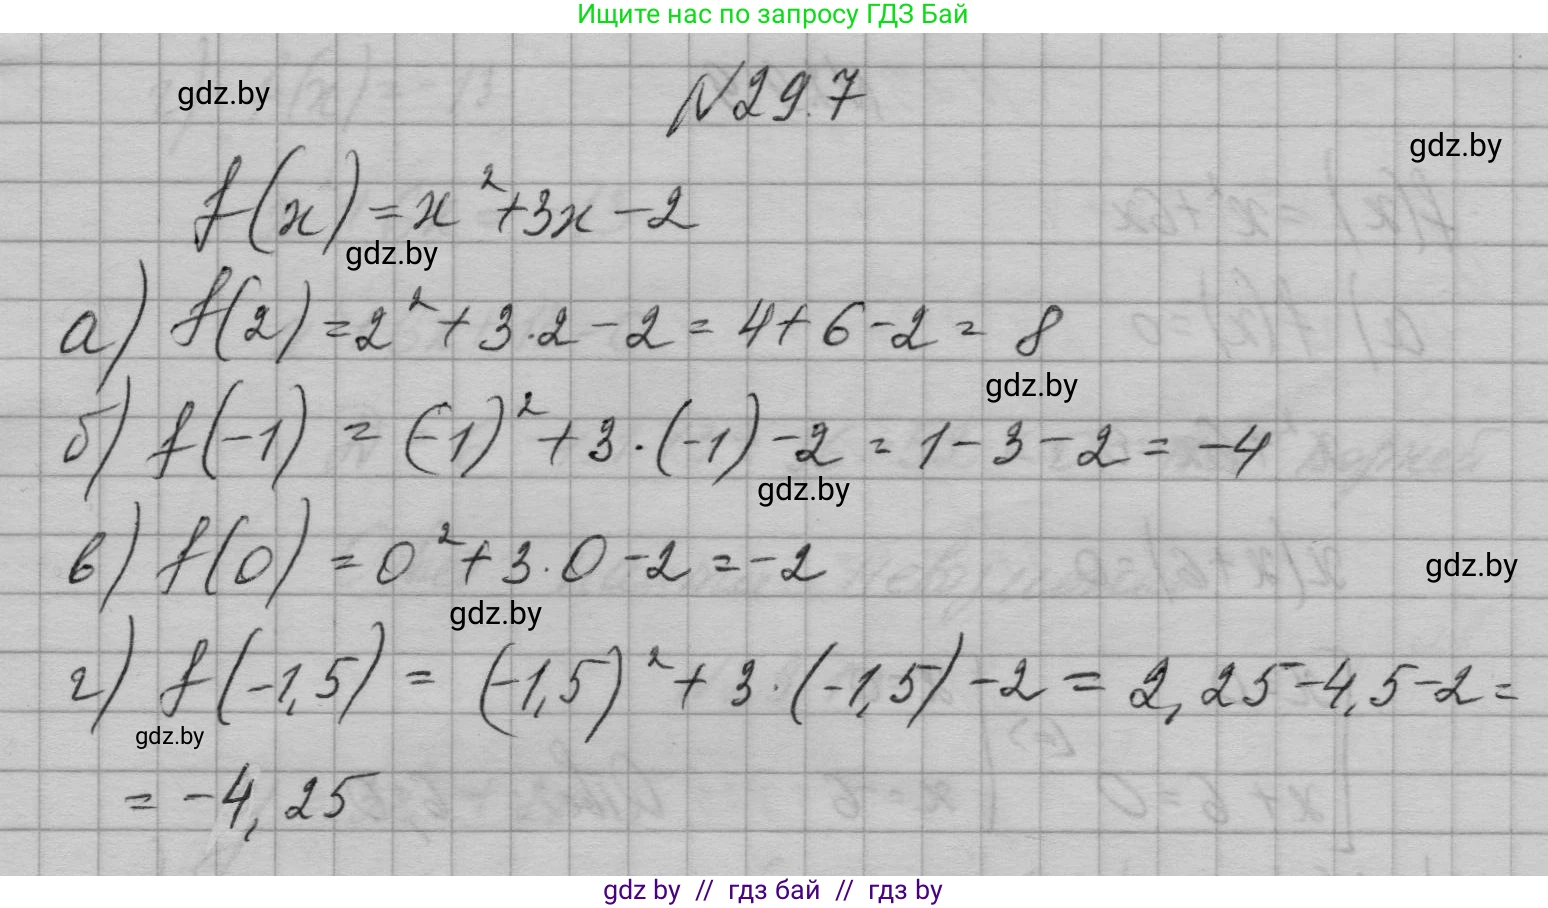 Ищите нас по запросу ГДЗ Бай
gdz.by
№29.7
gdz.by
f(x)=x²+3x-2
gdz.by
а) f(2)=2²+3·2-2=4+6-2=8
gdz.by
б) f(-1)=(-1)²+3·(-1)-2=1-3-2=-4
gdz.by
в) f(0)=0²+3·0-2=-2
gdz.by
gdz.by
г) f(-1,5)=(-1,5)²+3·(-1,5)-2=2,25-4,5-2=
gdz.by
=-4,25
gdz by // гдз бай // гдз by